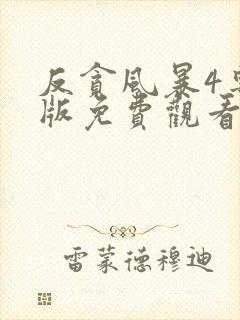 反貪風暴4
版免費觀看
雷蒙德穆迪